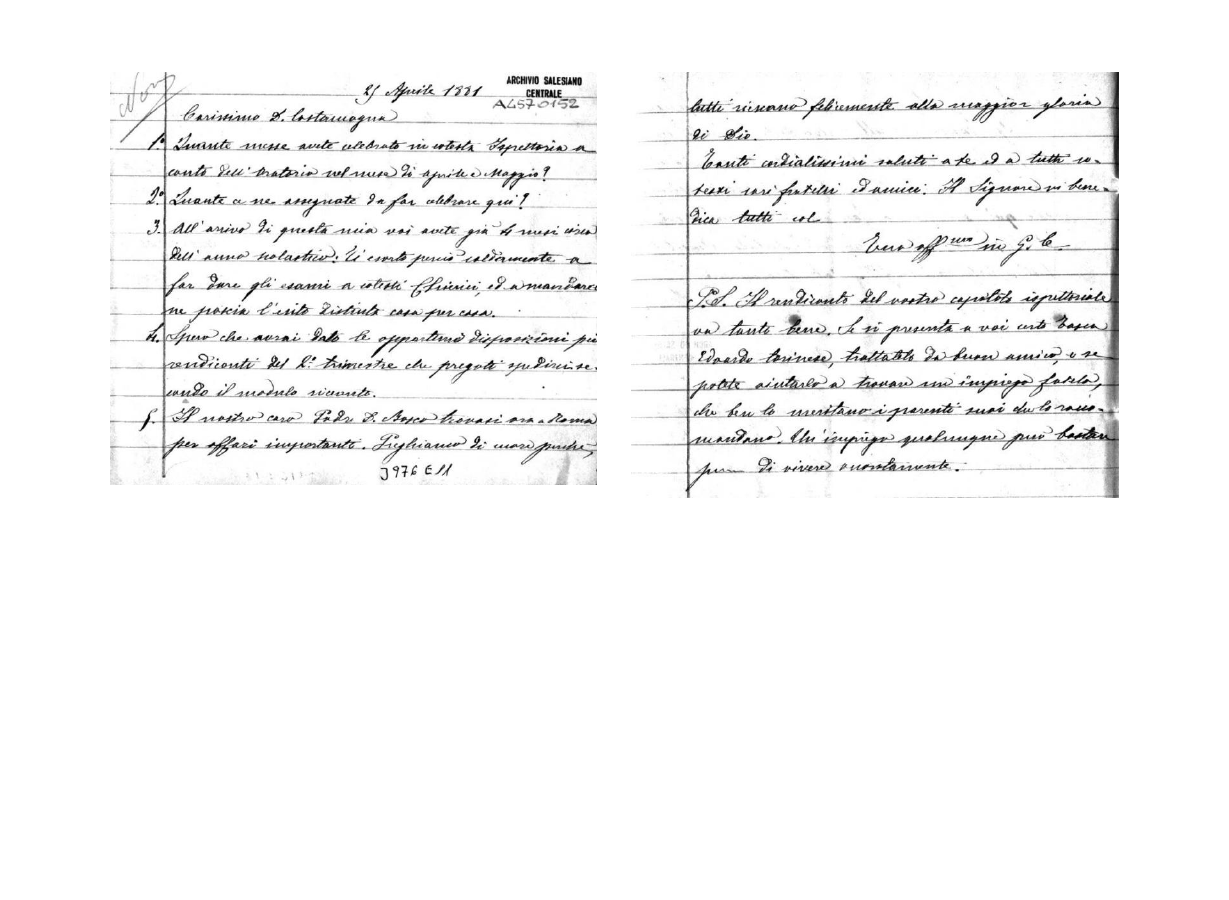 25 Aprile 1881
ARCHIVIO SALESIANO
CENTRALE
A4570152
Carissimo D. Costamagna
1º Quante messe avete celebrato in cotesta Ispettoria a
conto dell'Oratorio nel mese di aprile e Maggio?
2º Quante ce ne assegnate da far celebrare qui?
3. All'arivo di questa mia voi avete già 4 mesi circa
dell'anno scolastico. Ti esorto perciò caldamente a
far dare gli esami a cotesti Chierici, ed a mandar
ne poscia l'esito distinto casa per casa.
4. Spero che avrai dato le opportune disposizioni pei
rendiconti del 1º trimestre che pregoti spedirci se-
condo il modulo ricevuto.
5. Il nostro caro Padre D. Bosco trovasi ora a Roma
per affari importanti. Preghiamo di cuore perchè
J976 E11
tutti riescano felicemente alla maggior gloria
di Dio.
Tanti cordialissimi saluti a te ed a tutti co-
testi cari fratelli ed amici. Il Signore vi bene-
dica tutti col
Tuo aff.mo in G. C.
P.S. Il rendiconto del vostro capitolo ispettoriale
va tanto bene. Se si presenta a voi certo Tosca
Edoardo torinese, trattatelo da buon amico, e se
potete aiutarlo a trovare un impiego fatelo,
che ben lo meritano i parenti suoi che lo racco-
mandano. Un'impiego qualunque può bastare
di vivere onoratamente.